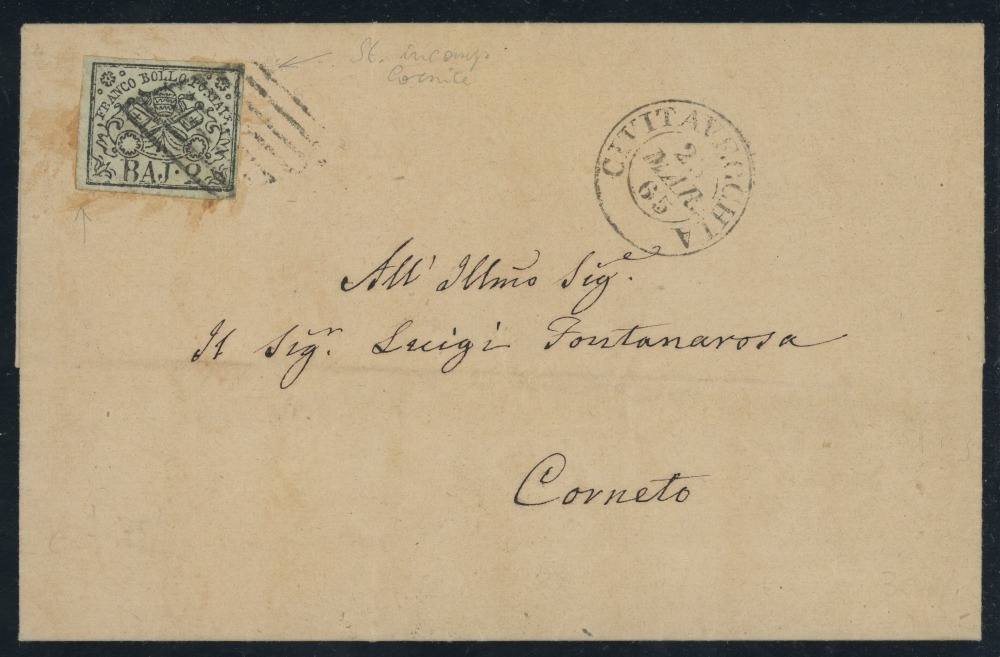 St. incomp
Cornice
FRANCO BOLLO POSTALE
BAJ. 2
CIVITAVECCHIA
MAR.
65
All' Illmo Sige.
Il Sigr. Luigi Fontanarosa
Corneto